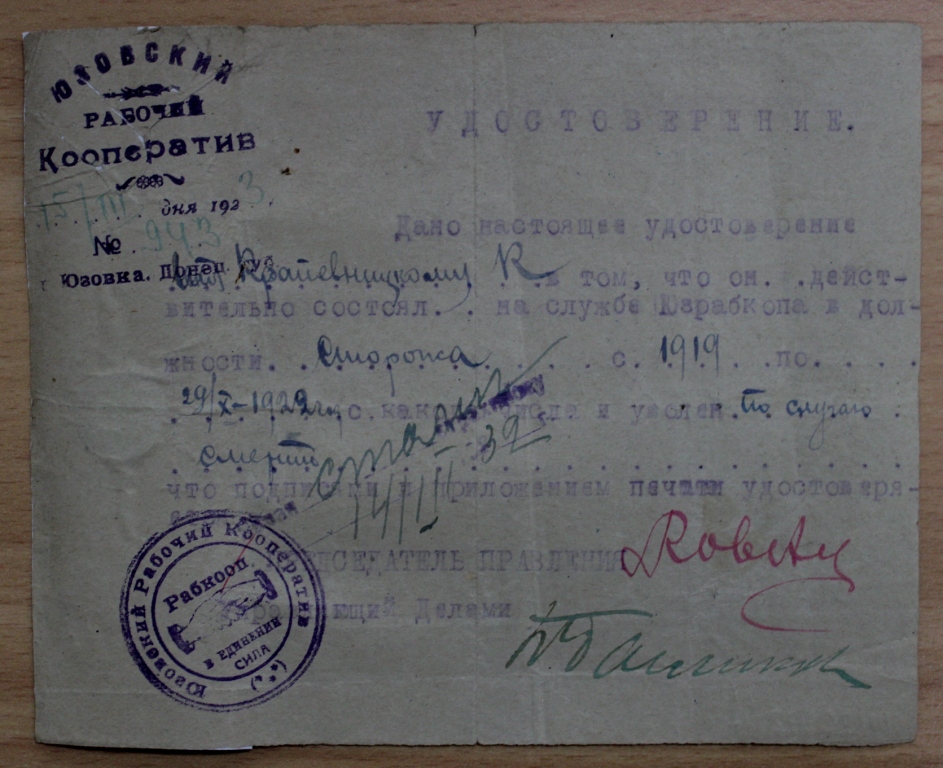 ЮЗОВСКИЙ
РАБОЧИЙ
Кооператив
15/III дня 1923.
№ 943
Юзовка. Донец.
УДОСТОВЕРЕНИЕ.
Дано настоящее удостоверение
Крапевницкому К в том, что он. .дейст-
вительно состоял. . на службе Юзрабкопа в дол-
жности. . Сторожа . . . с. 1919 . .по. . . .
29/X-1922 г. и уволен. По случаю .
смерти
что подписями и приложением печати удостоверя-
стаж
14/II 32
ПРЕДСЕДАТЕЛЬ ПРАВЛЕНИЯ
Управляющий Делами
Юзовский Рабочий Кооператив
Рабкооп.
В ЕДИНЕНИИ
СИЛА